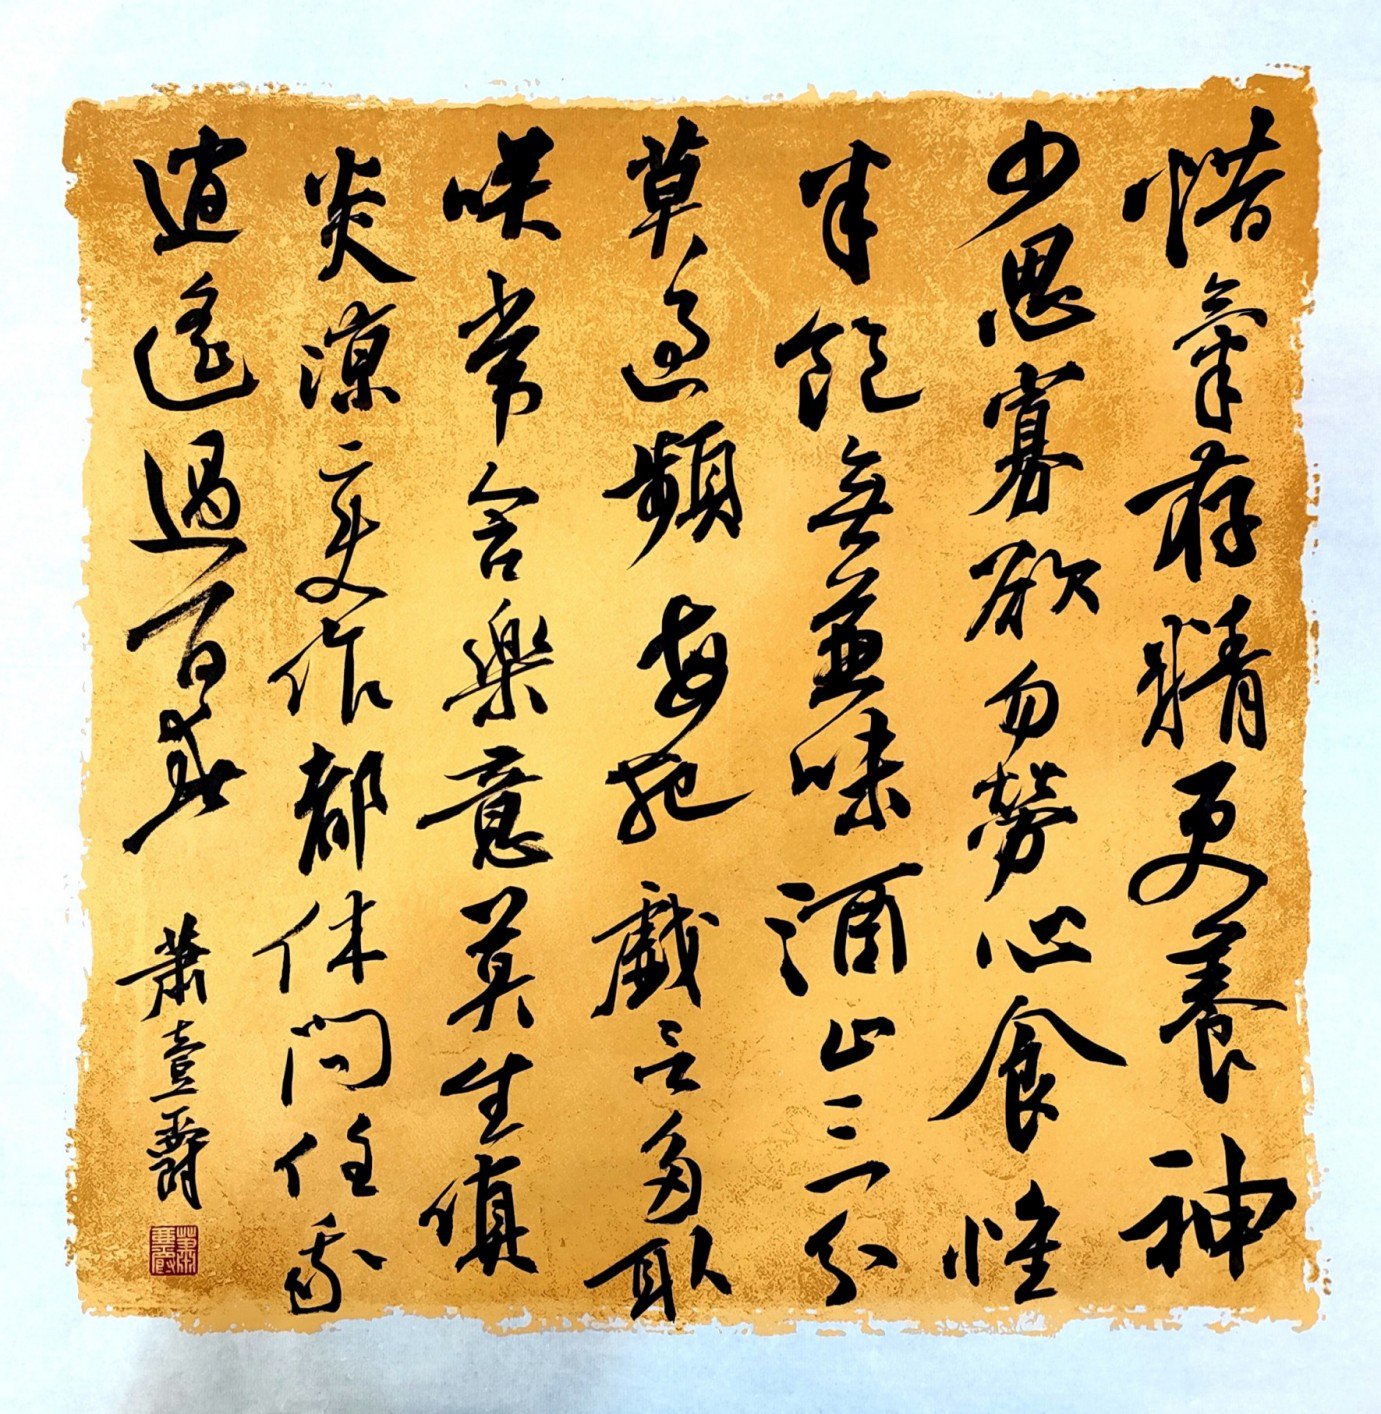 惜氣存精更養神
少思寡欲勿勞心食惟
半飽無兼味酒止三分
莫過頻每把戲言多取
咲常含樂意莫生嗔
炎涼变詐都休問任我
逍遙過百春
蕭壹爵